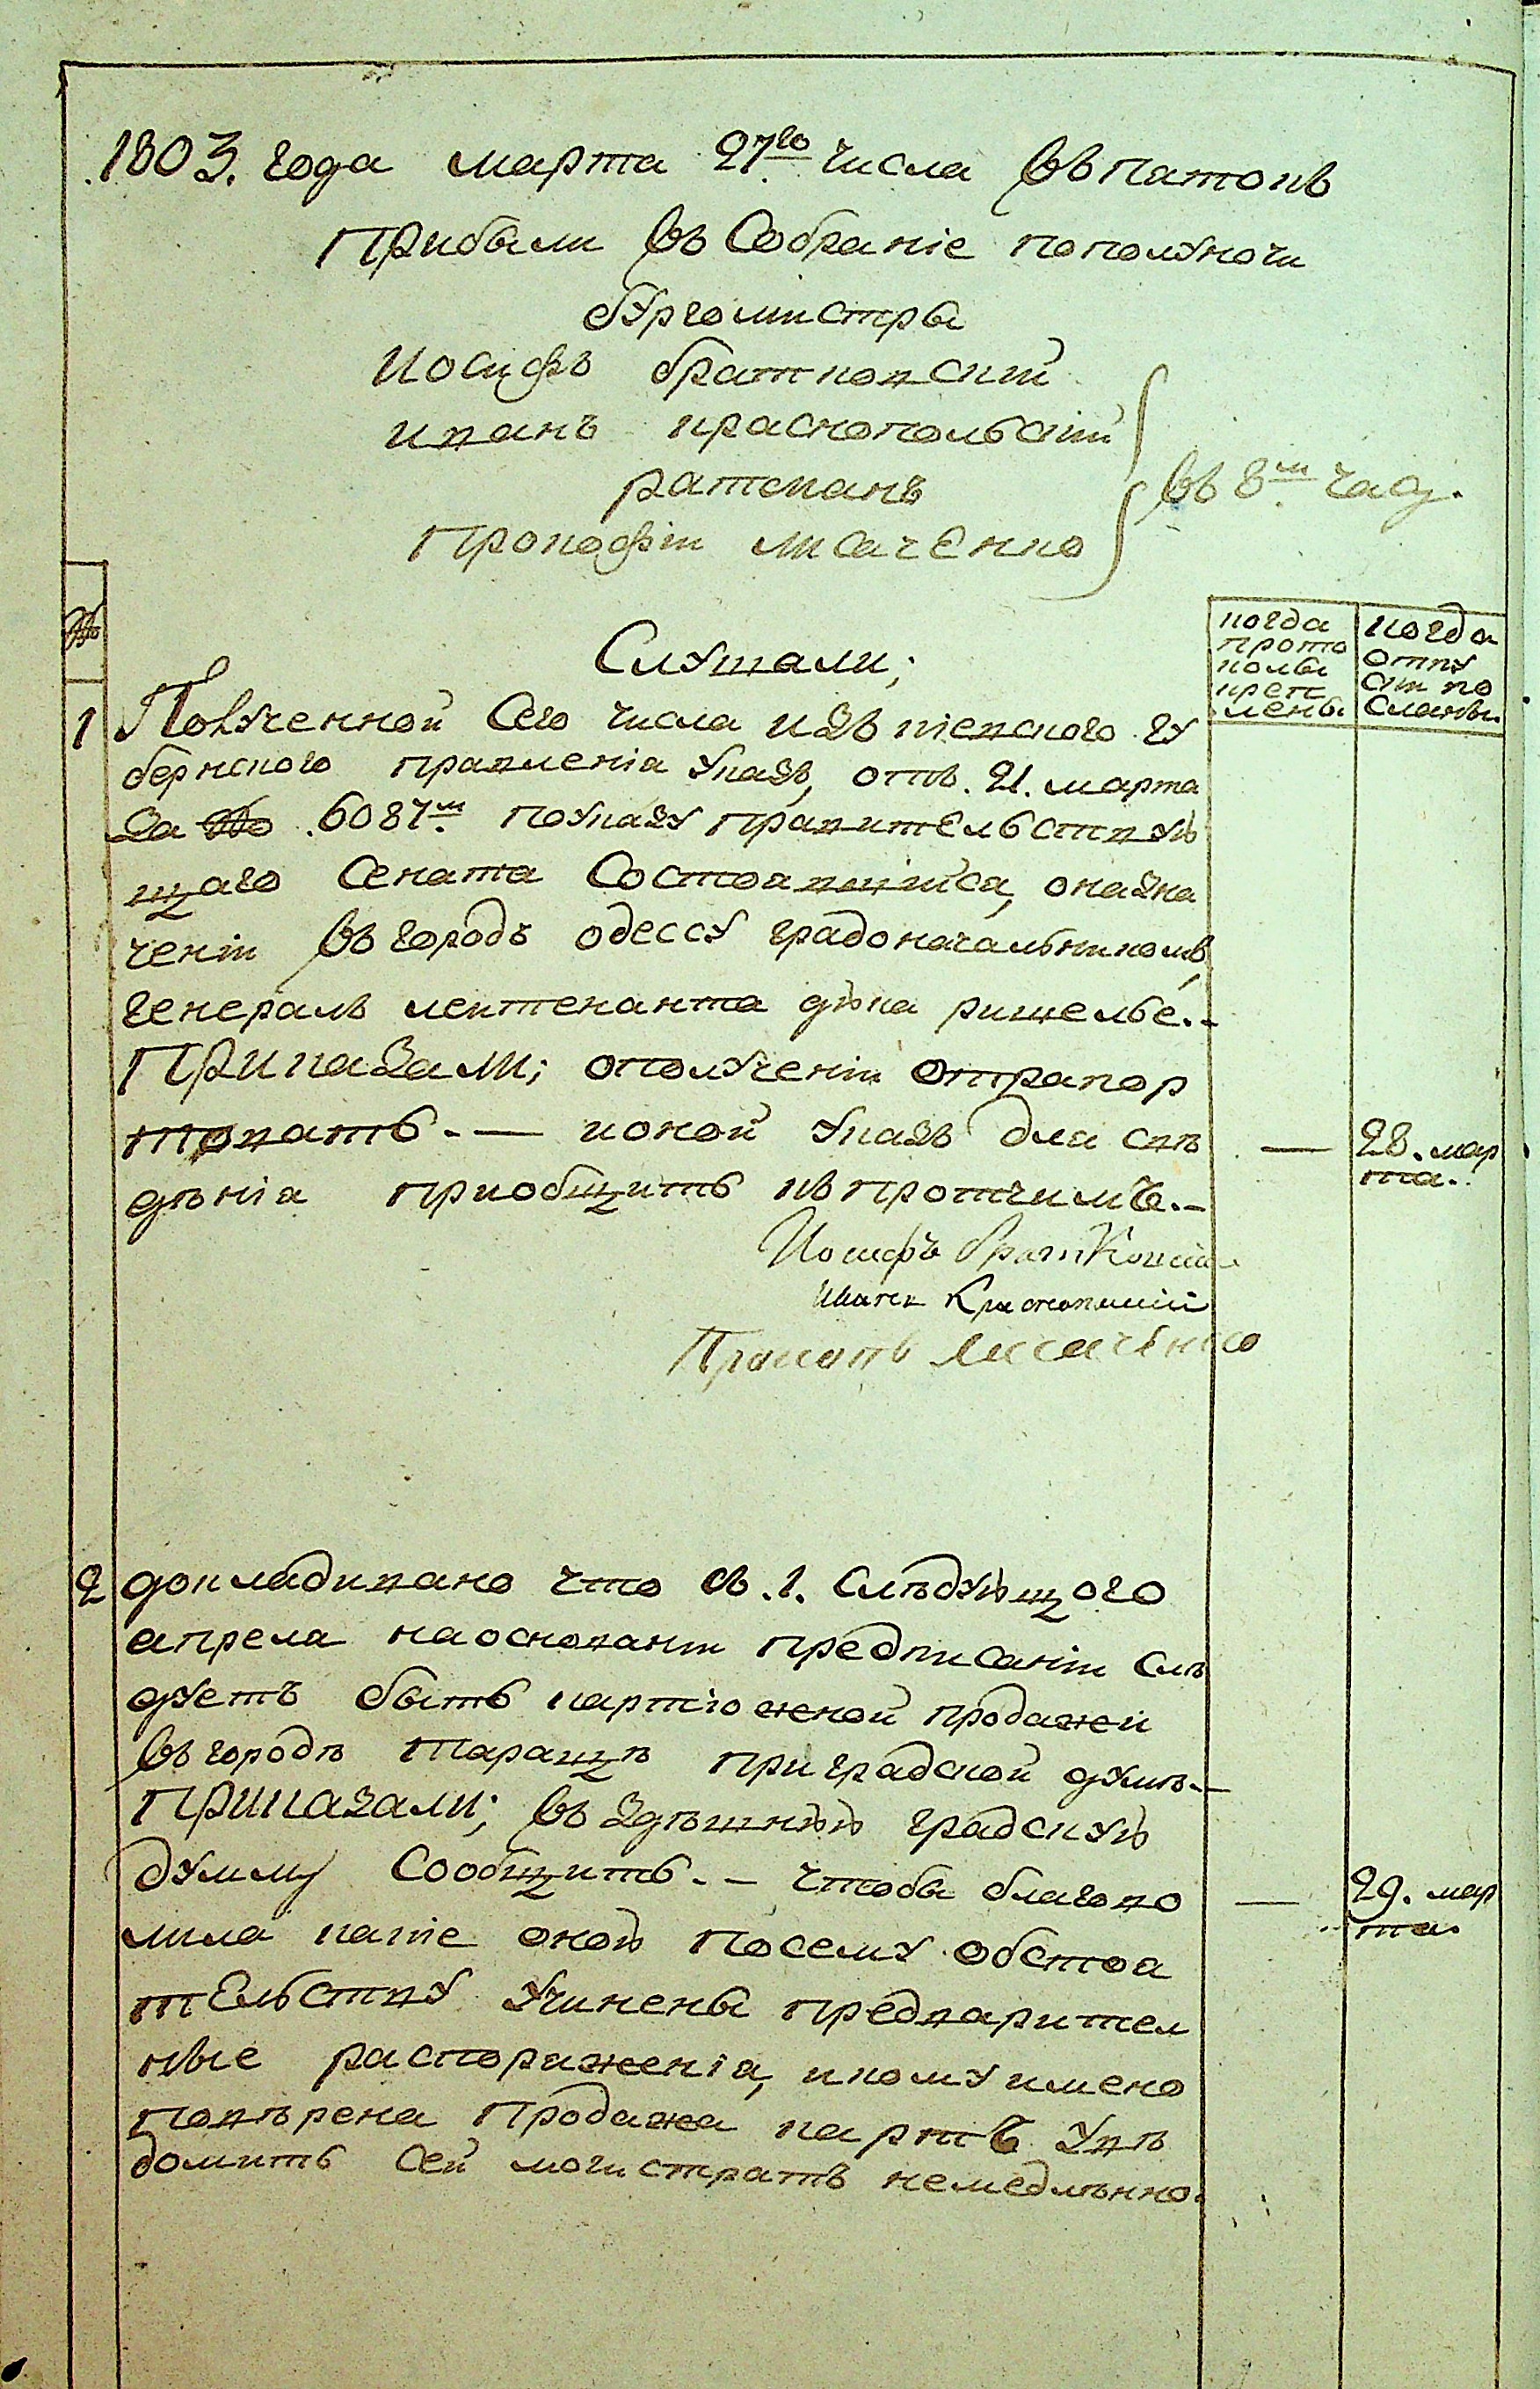 1803. года марта 27го числа въ пятокъ
Прибыли въ Собраніе пополуночи
бургомистры
иосифъ братковскій
иванъ краснопольскій
ратманъ
Прокофій лисаченко
въ 8м часу.
№
Слушали;
когда
прото
колы
креп
лены.
когда
отпу
ски по
сланы.
1 Полученной Сего числа изъ кіевского гу
бернского правленія Указъ, отъ 21. марта
за № 6087м по указу правительствую
щаго Сената Состоявшійся, о назна
ченіи въ городъ одессу градоначальникомъ
генералъ лейтенанта дюка ришелье.-
Приказали; о получе­ніи отрапор
товать.— и оной Указъ для свѣ
дѣнія приобщить къ протчимъ.-
— 28. мар
та.
Иосифъ братковскій
Иванъ Краснопольскій
Лисаченко
2 докладивано что съ 1. Слѣдующого
апреля на основаніи предписаніи слѣ
дуетъ быть картюжной продажей
въ городѣ таращѣ при градской думѣ.—
Приказали; въ здѣшнюю градскую
думму Сообщить.- чтобы благово
лила какіе оной по сему обстоя
тельству Учинены предварител
ные распоряженія, и кому имено
повѣрена Продажа картъ Увѣ
домить Сей могистратъ немедлѣнно.
— 29. мар
та.